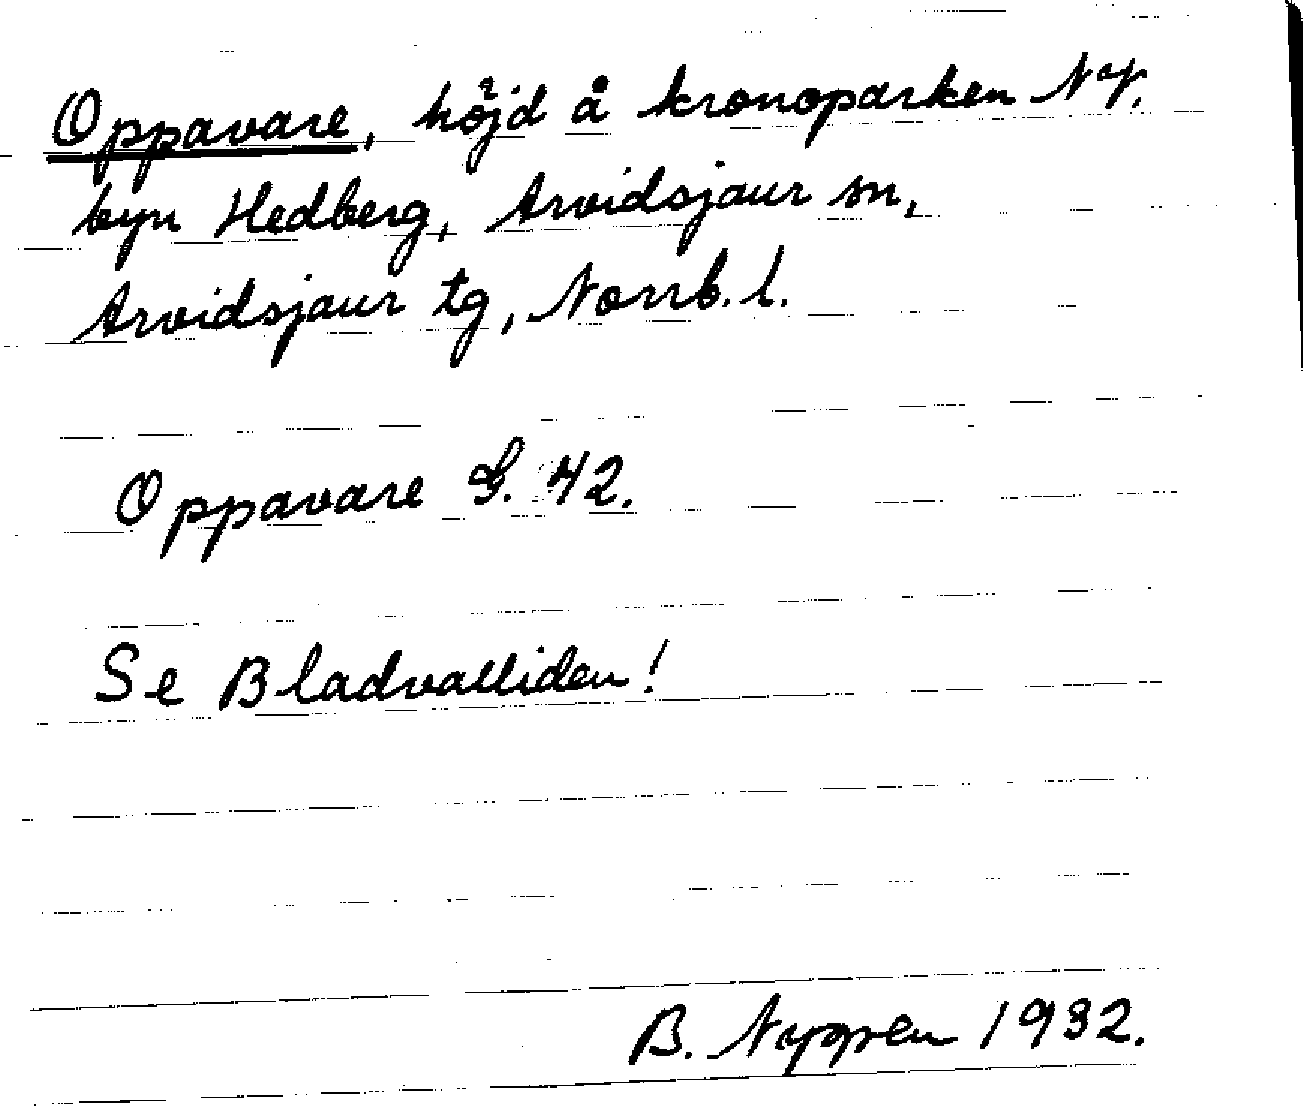 Oppavare, höjd å kronoparken NV.
byn Hedberg, Arvidsjaur sn,
Arvidsjaur tg, Norrb. l.
Oppavare G. 42.
Se Bladvalliden!
B. 1932.